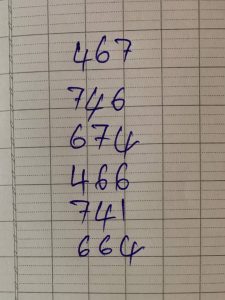 467
746
674
466
741
664